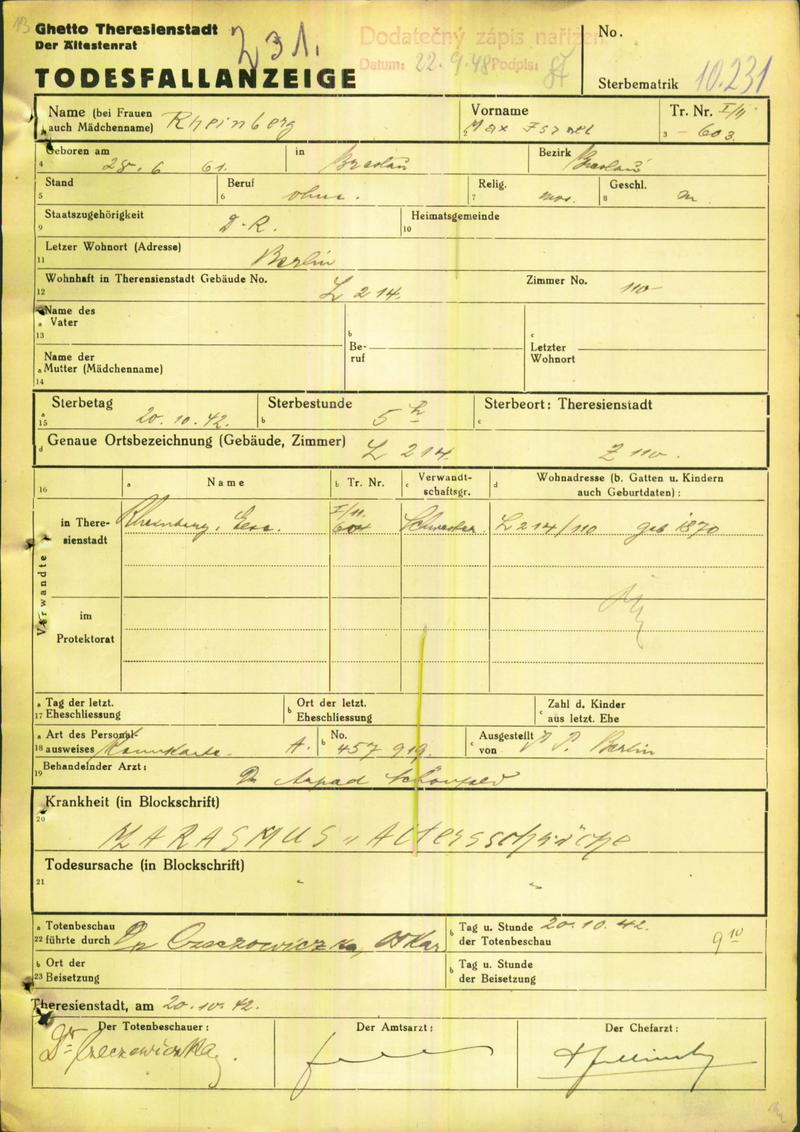 Ghetto Theresienstadt
Der Ältestenrat
TODESFALLANZEIGE
Dodatečný zápis nařízen
Datum: 22.9.48 Podpis:
No.
Sterbematrik 10.231
Name (bei Frauen auch Mädchenname) Rheinberg
Vorname Max Israel
Tr. Nr. I/71
3 - 603
4 Geboren am 28.6 61. in Breslau Bezirk Breslau
5 Stand
6 Beruf ohne.
7 Relig. mos.
8 Geschl. m.
9 Staatszugehörigkeit D.R.
10 Heimatsgemeinde
11 Letzer Wohnort (Adresse) Berlin
12 Wohnhaft in Theresienstadt Gebäude No. L 214. Zimmer No. 110
a Name des Vater
13
b Beruf
c Letzter Wohnort
a Name der Mutter (Mädchenname)
14
a 15 Sterbetag 20.10.42. b Sterbestunde 5 h c Sterbeort: Theresienstadt
d Genaue Ortsbezeichnung (Gebäude, Zimmer) L 214. Z 110.
16 a Name b Tr. Nr. c Verwandtschaftsgr. d Wohnadresse (b. Gatten u. Kindern auch Geburtdaten):
Verwandte
in Theresienstadt Rheinberg, Schwester. L 214/110 geb 1870
im Protektorat
a 17 Tag der letzt. Eheschliessung
b Ort der letzt. Eheschliessung
c Zahl d. Kinder aus letzt. Ehe
a 18 Art des Personalausweises Kennkarte A. b No. 457 919. c Ausgestellt von P.P. Berlin
19 Behandelnder Arzt: Dr Arpad Schönfeld
20 Krankheit (in Blockschrift)
MARASMUS Altersschwäche
21 Todesursache (in Blockschrift)
a 22 Totenbeschau führte durch Dr Czeczowiczka, Oskar b Tag u. Stunde der Totenbeschau 20.10.42. 9 10
b 23 Ort der Beisetzung
b Tag u. Stunde der Beisetzung
Theresienstadt, am 20.10.42.
Der Totenbeschauer: Der Amtsarzt: Der Chefarzt:
Dr Czeczowiczka